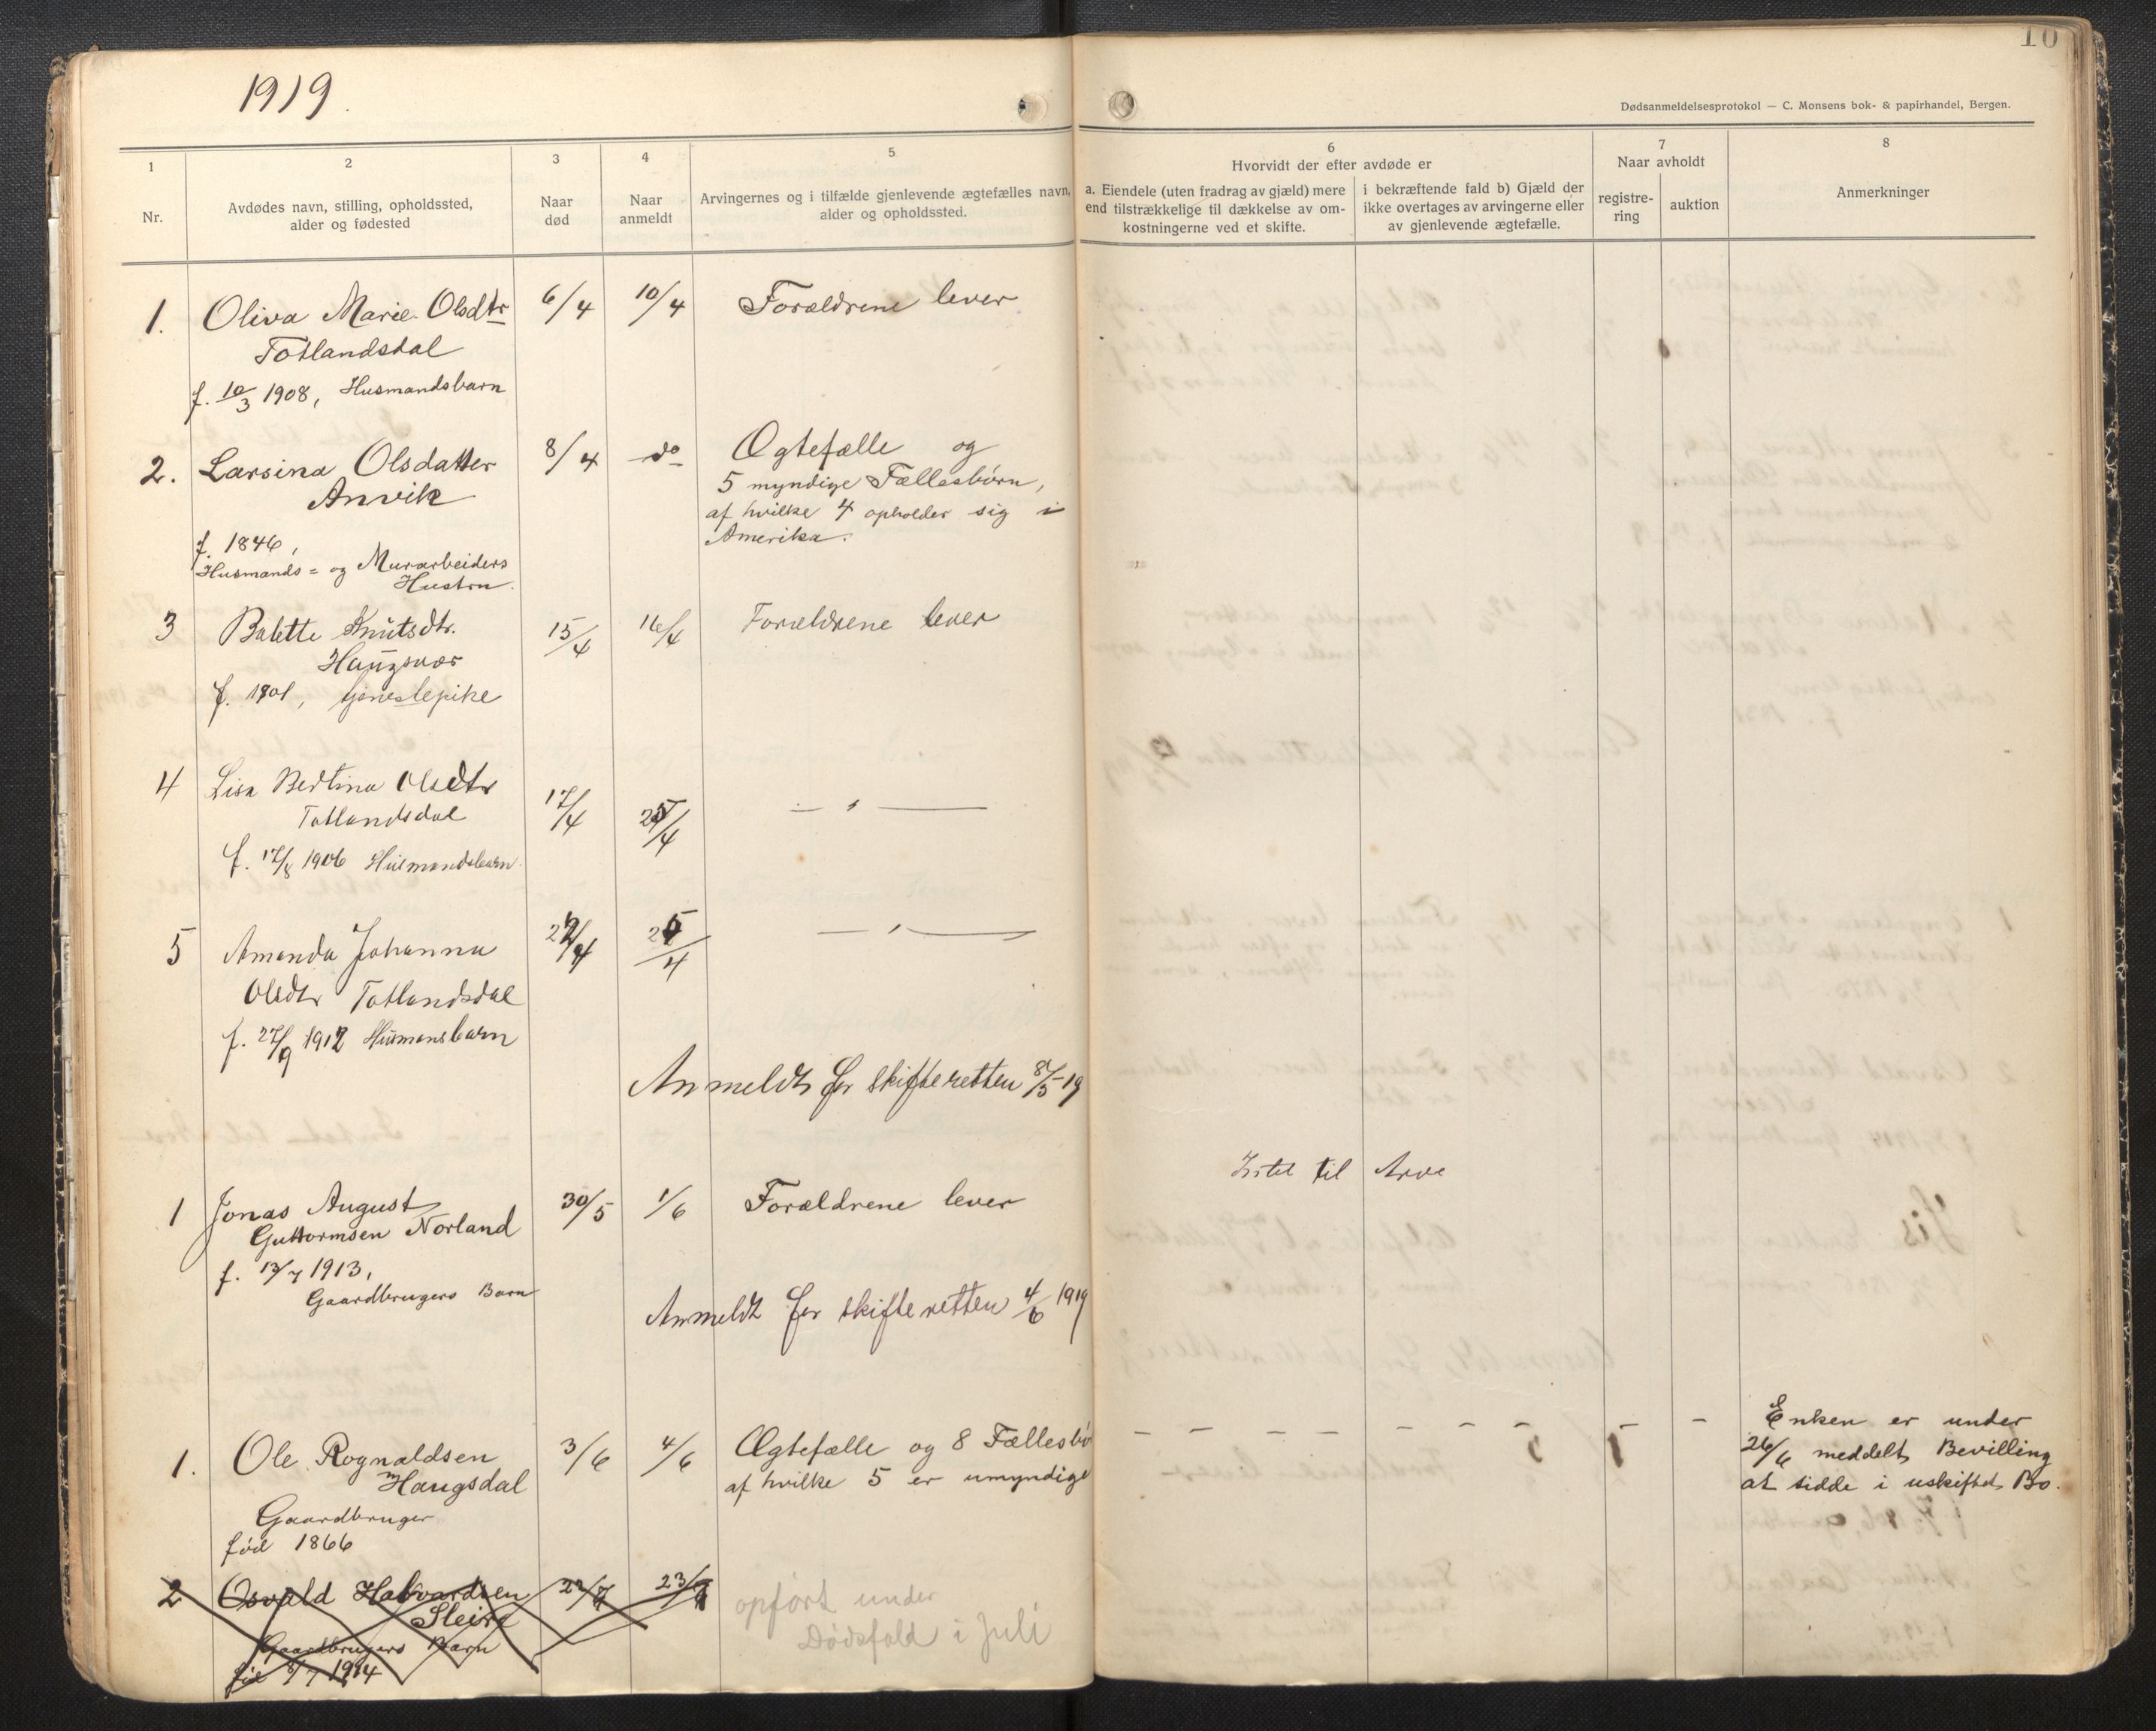 1919.
10
Dødsanmeldelsesprotokol — C. Monsens bok- & papirhandel, Bergen.
1
Nr.
2
Avdødes navn, stilling, opholdssted,
alder og fødested
3
Naar
død
4
Naar
anmeldt
5
Arvingernes og i tilfælde gjenlevende ægtefælles navn,
alder og opholdssted.
6
Hvorvidt der efter avdøde er
a. Eiendele (uten fradrag av gjæld) mere
end tilstrækkelige til dækkelse av om-
kostningerne ved et skifte.
i bekræftende fald b) Gjæld der
ikke overtages av arvingerne eller
av gjenlevende ægtefælle.
7
Naar avholdt
registre-
ring
auktion
8
Anmerkninger
1. Oliva Marie Olsdtr 6/4 10/4 Forældrene lever
Totlandsdal
f. 10/3 1908, Husmandsbarn
2. Larsina Olsdatter 8/4 do Ægtefælle og
Anvik 5 myndige Fællesbörn,
af hvilke 4 opholder sig i
Amerika.
f. 1846,
Husmands= og Murarbeiders
Hustru.
3 Balette Knutsdtr. 15/4 16/4 Forældrene lever
Haugsvær
f. 1901, tjenestepike
4 Lisa Bertina Olsdtr 17/4 25/4 — " —
Totlandsdal
f. 17/8 1906 Husmandsbarn.
5 Amanda Johanna 22/4 25/4 — " —
Olsdtr Totlandsdal
f. 27/9 1912 Husmansbarn
Anmeldt for skifteretten 8/5-19
Intet til Arve
1 Jonas August 30/5 1/6 Forældrene lever
Guttormsen Norland
f. 13/7 1913,
Gaardbrugers Barn
Anmeldt for skifteretten 4/6 1919
1. Ole Rognaldsen 3/6 4/6 Ægtefælle og 8 Fællesbö
Haugsdal af hvilke 5 er umyndige
Gaardbruger
föd 1866
— — — — — — — — —
Enken er under
26/6 meddelt Bevilling
at sidde i uskiftet Bo.
2 Osvald Halvardsen 22/7 23/7 opfört under
Sleire Dödsfald i Juli
Gaardbrugers Barn
föd 8/7 1914